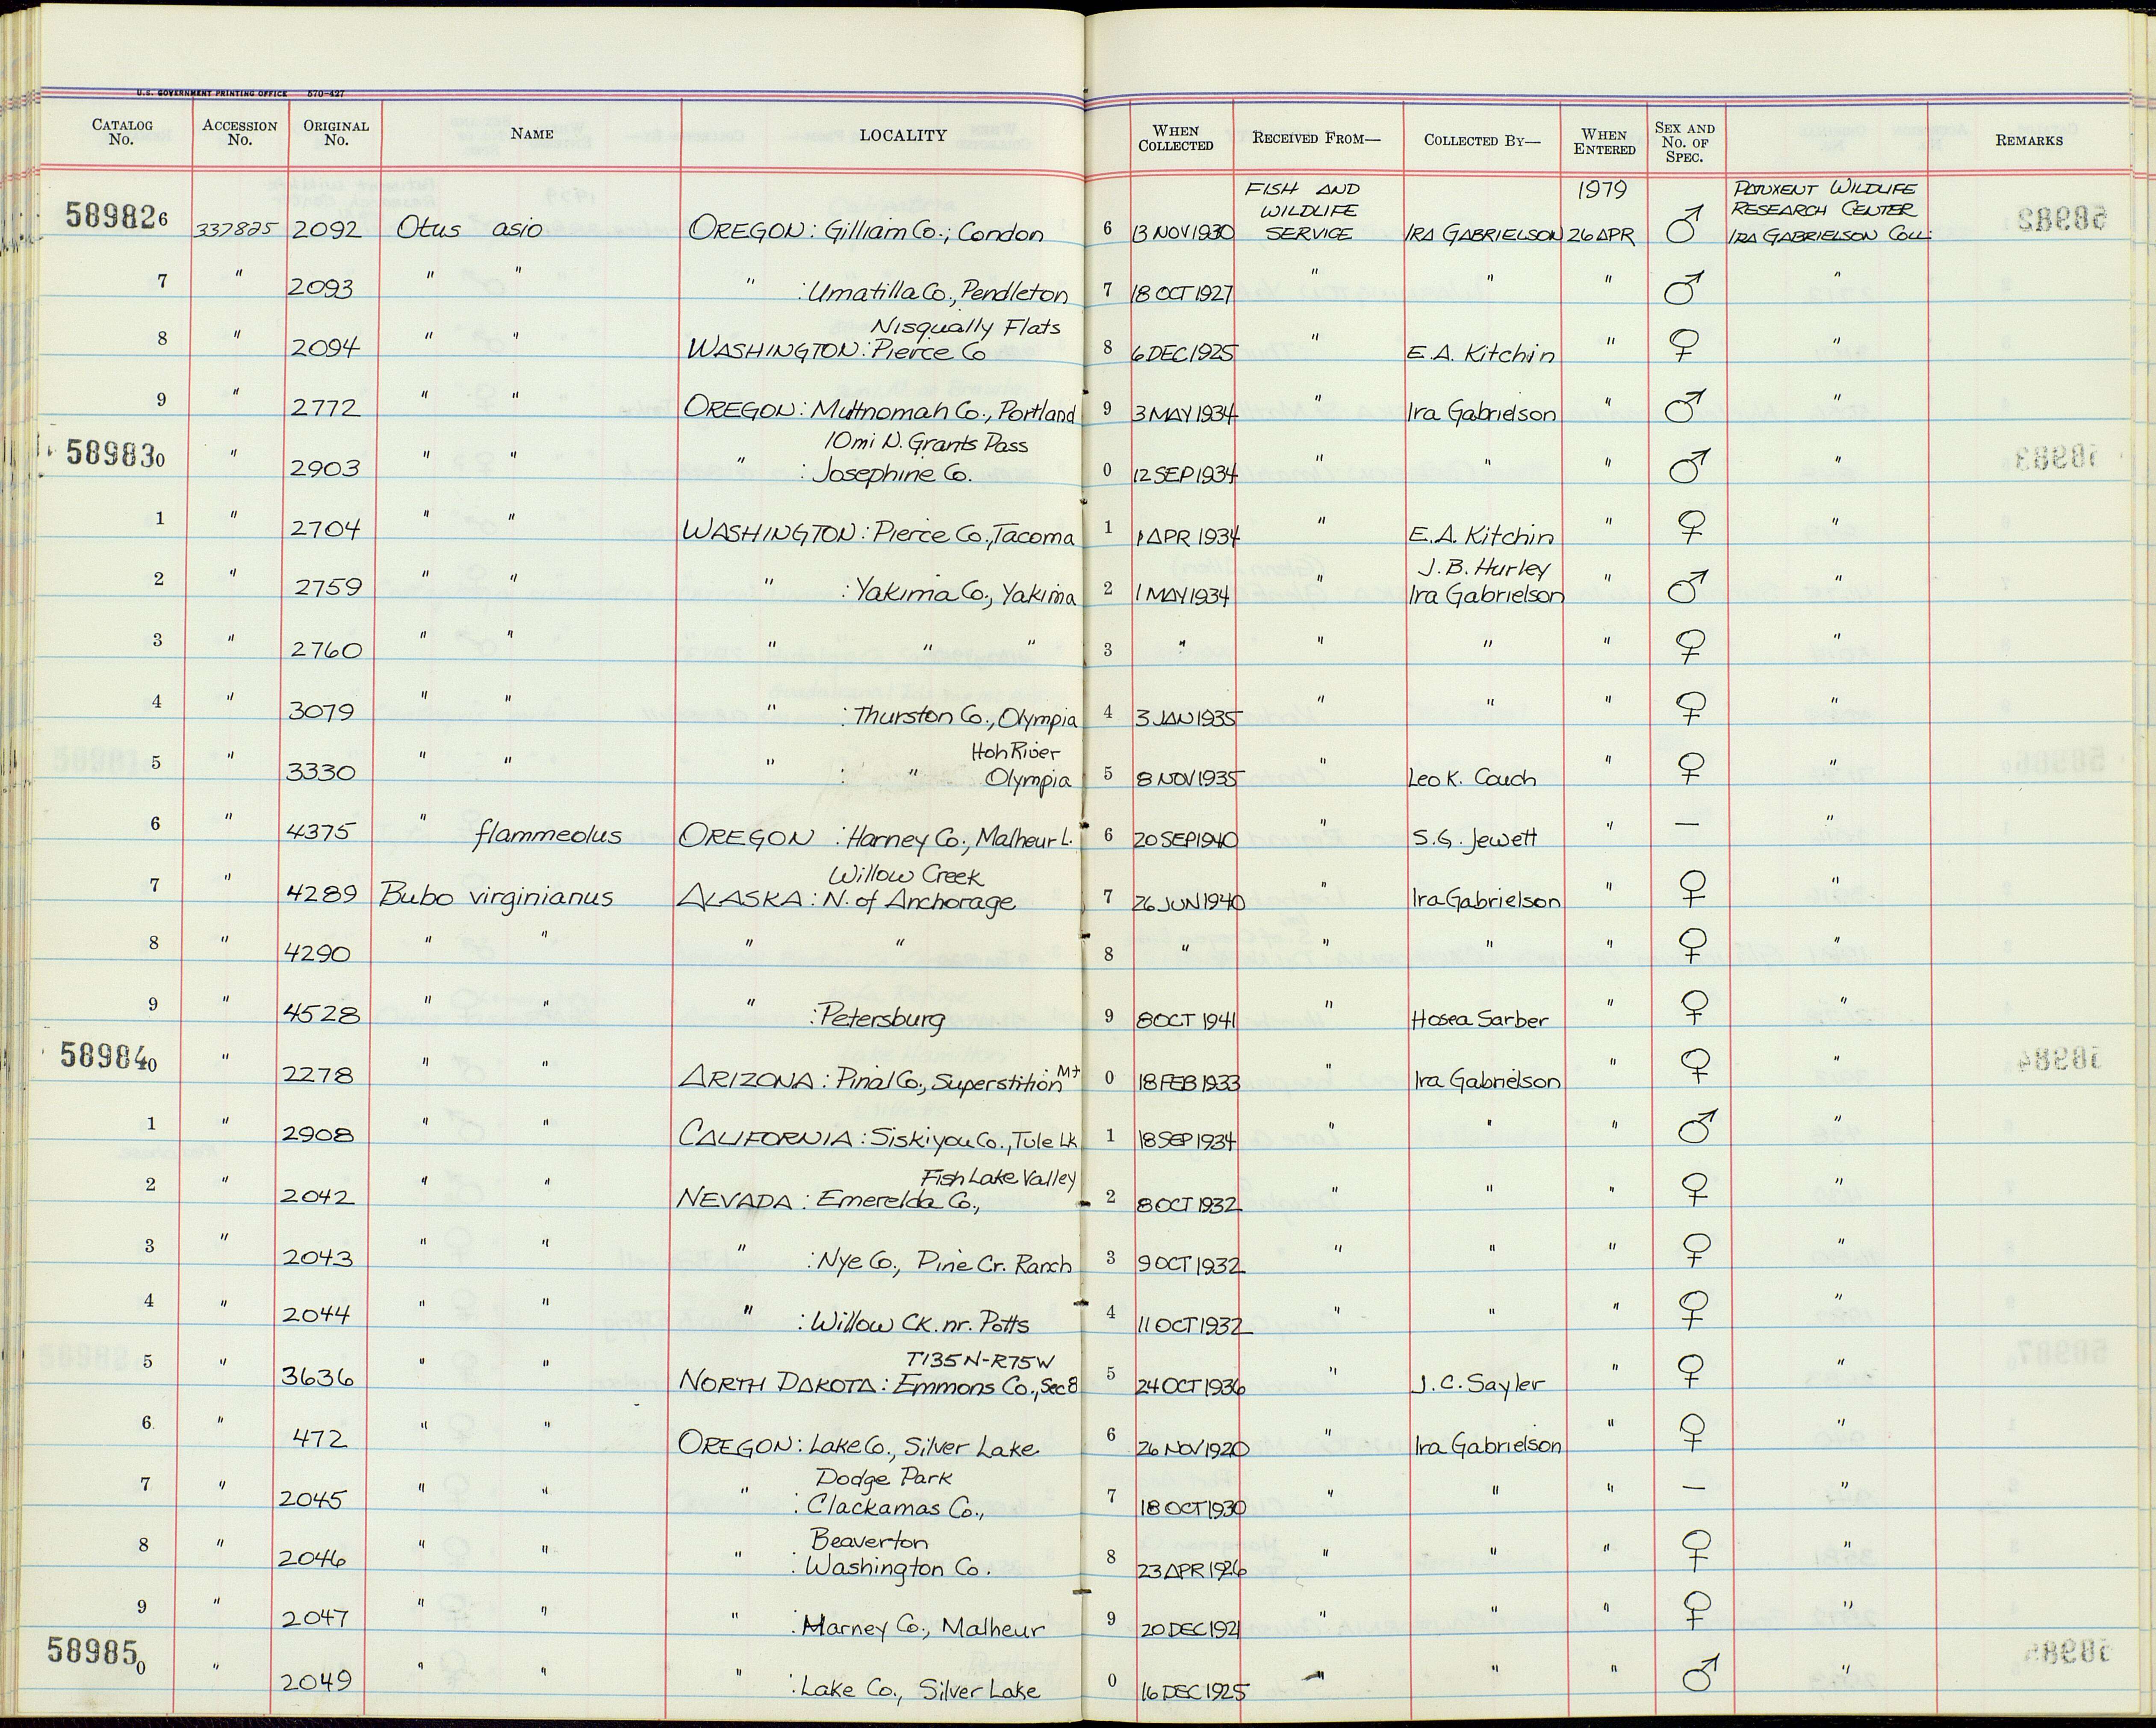 U.S. GOVERNMENT PRINTING OFFICE 570-427
CATALOG No. ACCESSION No. ORIGINAL No. NAME LOCALITY WHEN COLLECTED RECEIVED FROM— COLLECTED BY— WHEN ENTERED SEX AND No. OF SPEC. REMARKS
589826 337825 2092 Otus asio OREGON: Gilliam Co.; Condon 6 13 NOV 1930 FISH AND WILDLIFE SERVICE IRA GABRIELSON 1979 26 APR ♂ PATUXENT WILDLIFE RESEARCH CENTER IRA GABRIELSON COLL.
7 " 2093 " " " : Umatilla Co., Pendleton 7 18 OCT 1927 " " " ♂ "
8 " 2094 " " Nisqually Flats WASHINGTON: Pierce Co 8 6 DEC 1925 " E.A. Kitchin " ♀ "
9 " 2772 " " OREGON: Multnomah Co., Portland 9 3 MAY 1934 " Ira Gabrielson " ♂ "
589830 " 2903 " " 10mi N. Grants Pass " : Josephine Co. 0 12 SEP 1934 " " " ♂ "
1 " 2704 " " WASHINGTON: Pierce Co., Tacoma 1 1 APR 1934 " E.A. Kitchin " ♀ "
2 " 2759 " " " : Yakima Co., Yakima 2 1 MAY 1934 " J.B. Hurley Ira Gabrielson " ♂ "
3 " 2760 " " " " " 3 " " " " ♀ "
4 " 3079 " " " : Thurston Co., Olympia 4 3 JAN 1935 " " " ♀ "
5 " 3330 " " " : " Hoh River Olympia 5 8 NOV 1935 " Leo K. Couch " ♀ "
6 " 4375 " flammeolus OREGON : Harney Co., Malheur L. 6 20 SEP 1940 " S.G. Jewett " — "
7 " 4289 Bubo virginianus Willow Creek ALASKA: N. of Anchorage 7 26 JUN 1940 " Ira Gabrielson " ♀ "
8 " 4290 " " " " 8 " " " " ♀ "
9 " 4528 " " " : Petersburg 9 8 OCT 1941 " Hosea Sarber " ♀ "
589840 " 2278 " " ARIZONA: Pinal Co., Superstition Mt 0 18 FEB 1933 " Ira Gabrielson " ♀ "
1 " 2908 " " CALIFORNIA: Siskiyou Co., Tule Lk 1 18 SEP 1934 " " " ♂ "
2 " 2042 " " Fish Lake Valley NEVADA: Emerelda Co., 2 8 OCT 1932 " " " ♀ "
3 " 2043 " " " : Nye Co., Pine Cr. Ranch 3 9 OCT 1932 " " " ♀ "
4 " 2044 " " " : Willow CK. nr. Potts 4 11 OCT 1932 " " " ♀ "
5 " 3636 " " T135N-R75W NORTH DAKOTA: Emmons Co., Sec 8 5 24 OCT 1936 " J.C. Sayler " ♀ "
6 " 472 " " OREGON: Lake Co., Silver Lake 6 26 NOV 1920 " Ira Gabrielson " ♀ "
7 " 2045 " " Dodge Park " : Clackamas Co., 7 18 OCT 1930 " " " — "
8 " 2046 " " Beaverton " : Washington Co. 8 23 APR 1926 " " " ♀ "
9 " 2047 " " " : Harney Co., Malheur 9 20 DEC 1921 " " " ♀ "
589850 " 2049 " " " : Lake Co., Silver Lake 0 16 DEC 1925 " " " ♂ "